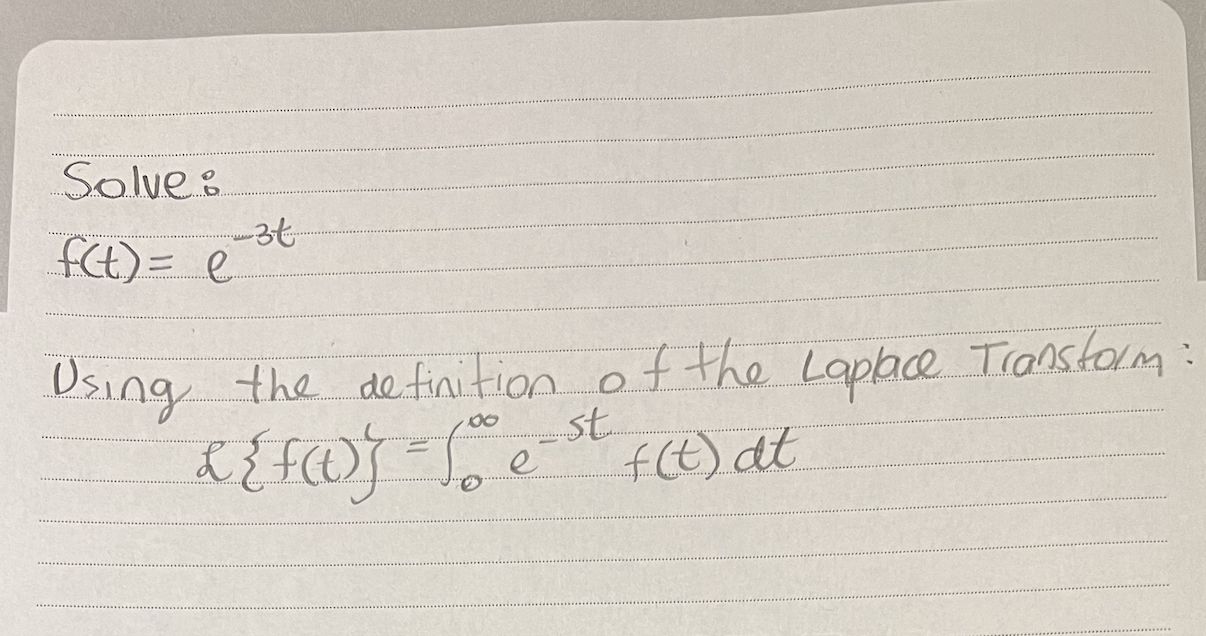 Solve:
f(t) = e^{-3t}
Using the definition of the Laplace Transform:
ℒ{f(t)} = ∫_0^∞ e^{-st} f(t) dt